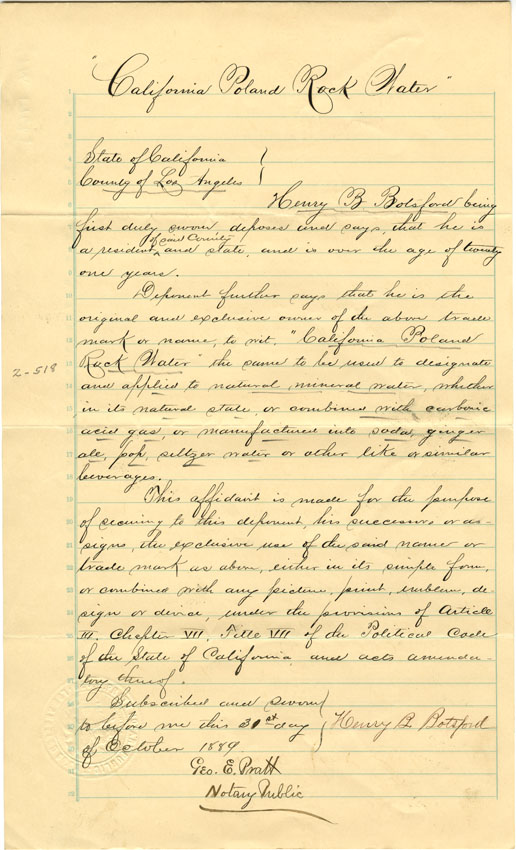 "California Poland Rock Water"
State of California
County of Los Angeles
Henry B Botsford being
first duly sworn, deposes and says, that he is
of said County
a resident ^ and state, and is over the age of twenty
one years.
Deponent further says that he is the
original and exclusive owner of the above trade
mark or name, to wit. "California Poland
Rock Water" the same to be used to designate
2-518
and applied to natural mineral water, whether
in its natural state, or combined with carbonic
acid gas, or manufactured into soda, ginger
ale, pop, seltzer water or other like or similar
beverages.
This affidavit is made for the purpose
of securing to this deponent, his successors or as-
signs, the exclusive use of the said name or
trade mark as above, either in its simple form,
or combined with any picture, print, emblem, de-
sign or device, under the provisions of Article
III. Chapter VII, Title VII of the Political Code
of the State of California and acts amenda-
tory thereof.
Subscribed and sworn
to before me this 31st day
Henry B. Botsford
of October 1889
Geo. E. Pratt
Notary Public